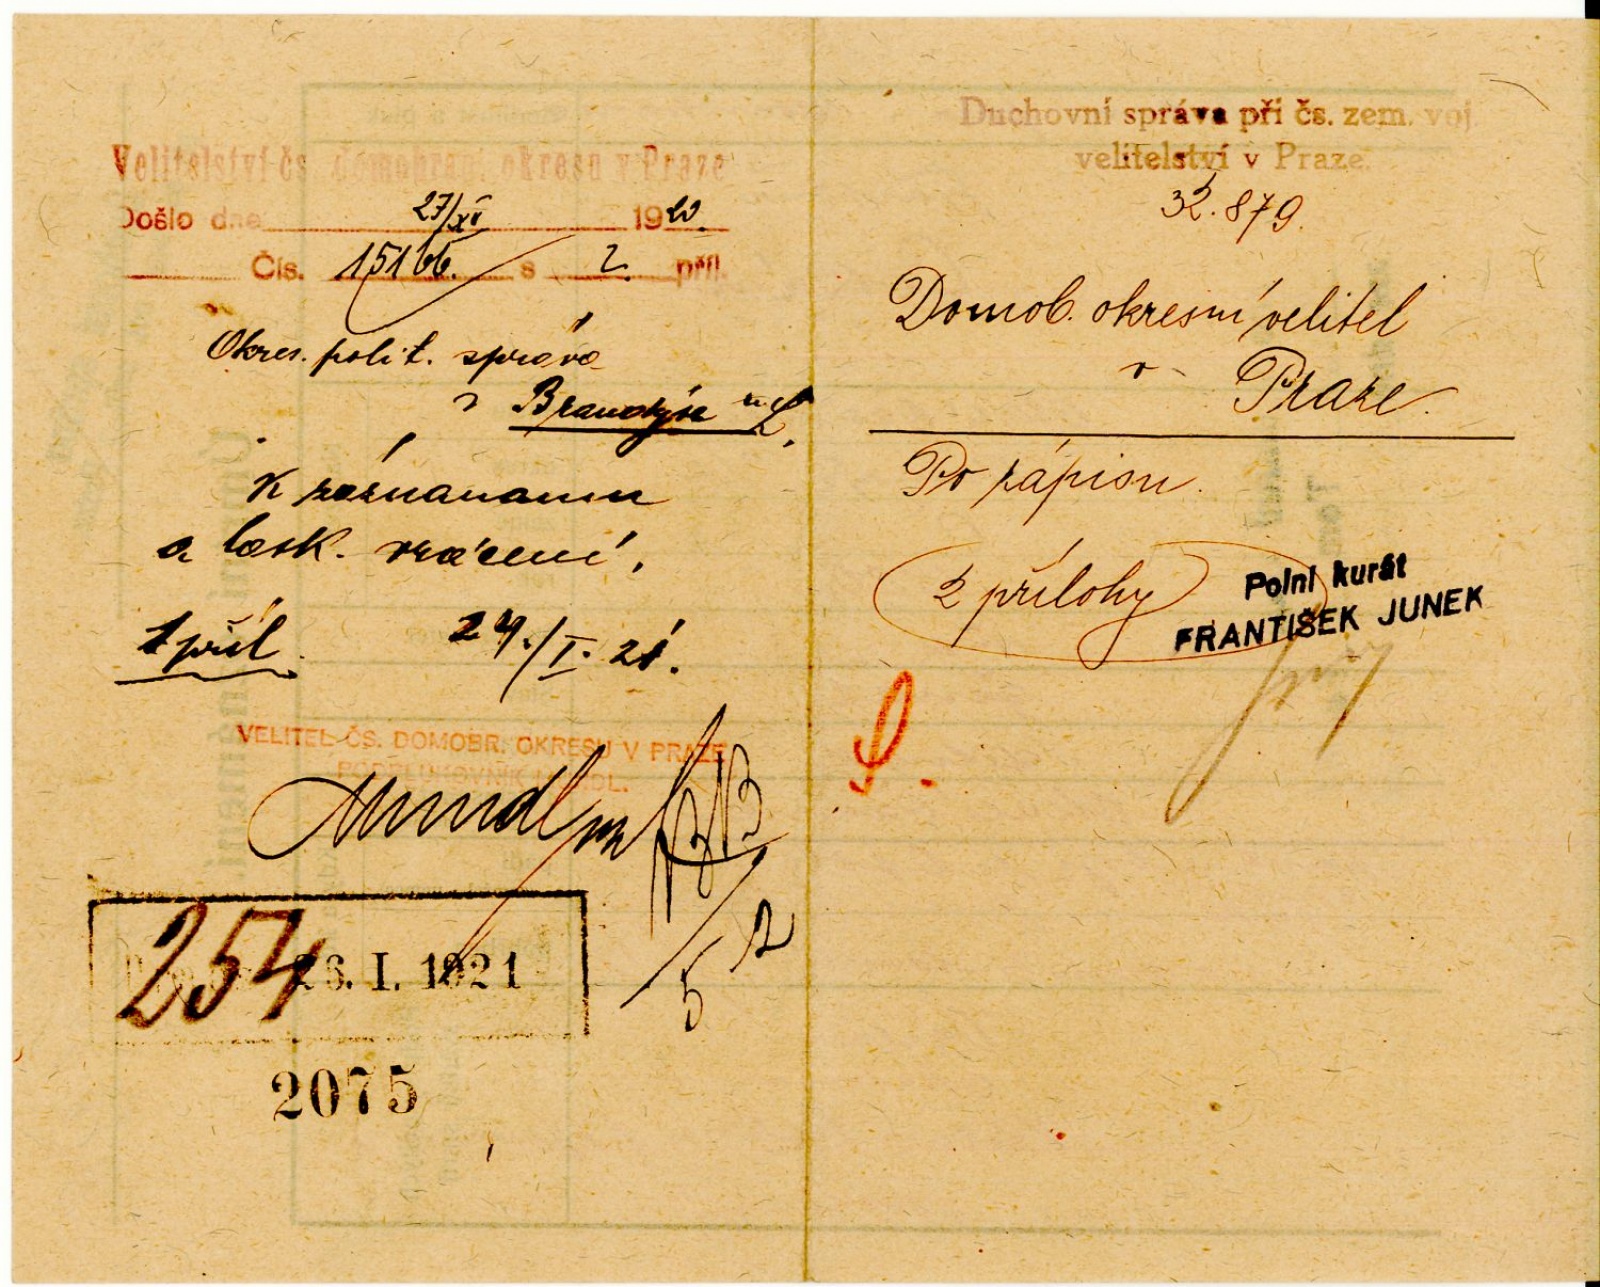 Velitelství čs. domobran. okresu v Praze
Došlo dne 27/XII 1920.
Čís. 15166. s 2. příl.
Okres. polit. správa
v Brandýse n/L.
K zaznamenání
a lask. vrácení.
1 příl. 24./I. 21.
VELITEL ČS. DOMOBR. OKRESU V PRAZE
PODPLUKOVNÍK MANDL.
254 26. I. 1921
5 2
2075
Duchovní správa při čs. zem. voj.
velitelství v Praze.
32.879.
Domob. okresní velitel
v
Praze.
Po zápisu.
2 přílohy
Polní kurát
FRANTIŠEK JUNEK